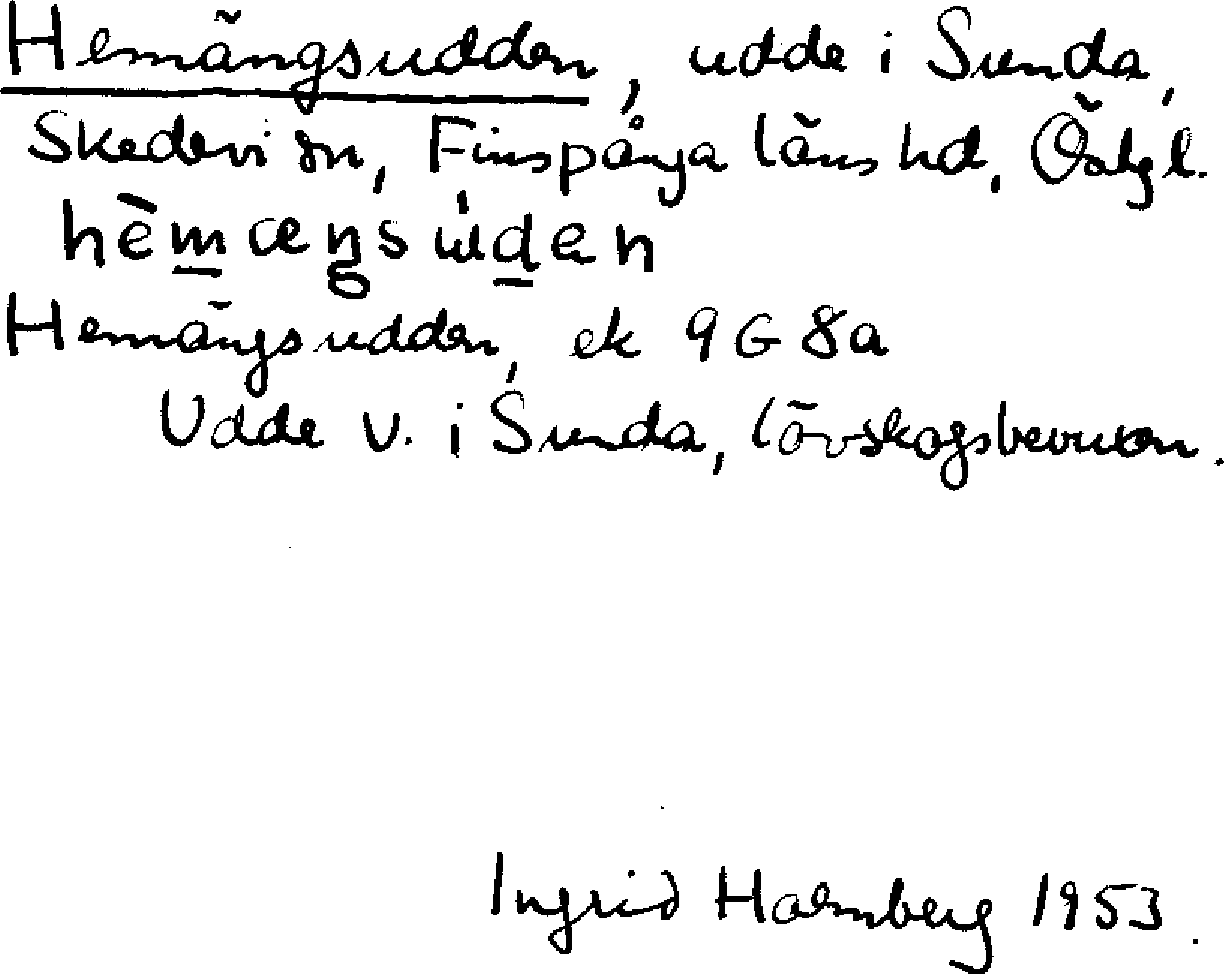 Hemängsudden, udde i Sunda,
Skedevi sn, Finspånga läns hd, Östgl.
hèmæŋsùden
Hemängsudden, ek 9G 8a
Udde v. i Sunda, lövskogsbevuxen.
Ingrid Holmberg 1953.